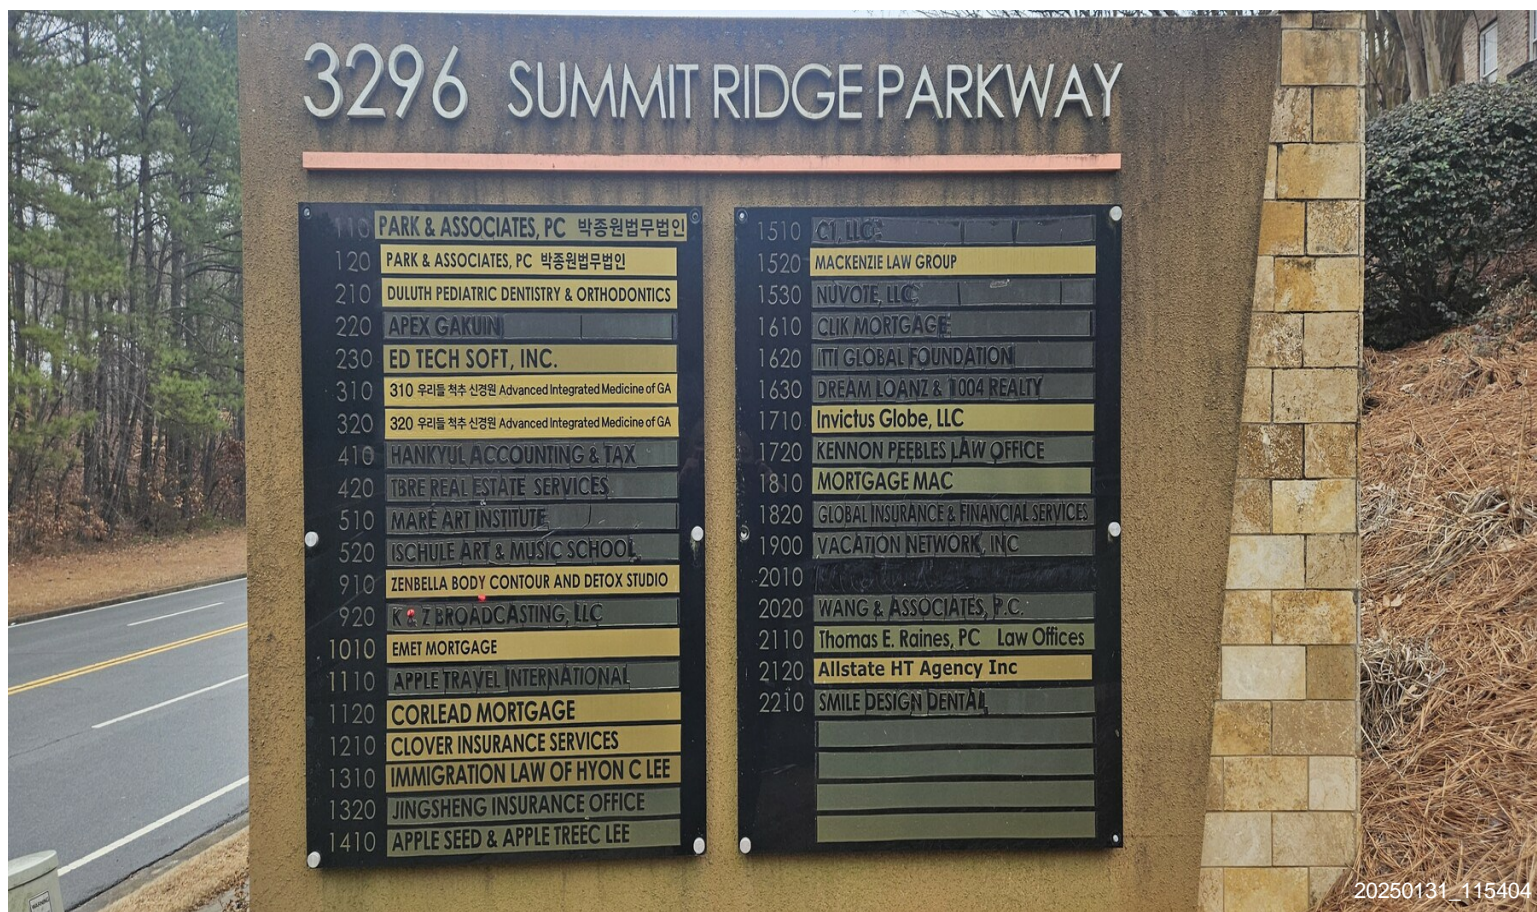 3296 SUMMIT RIDGE PARKWAY
110 PARK & ASSOCIATES, PC 박종원법무법인
120 PARK & ASSOCIATES, PC 박종원법무법인
210 DULUTH PEDIATRIC DENTISTRY & ORTHODONTICS
220 APEX GAKUIN
230 ED TECH SOFT, INC.
310 310 우리들 척추 신경원 Advanced Integrated Medicine of GA
320 320 우리들 척추 신경원 Advanced Integrated Medicine of GA
410 HANKYUL ACCOUNTING & TAX
420 TBRE REAL ESTATE SERVICES
510 MARE ART INSTITUTE
520 ISCHULE ART & MUSIC SCHOOL
910 ZENBELLA BODY CONTOUR AND DETOX STUDIO
920 K & Z BROADCASTING, LLC
1010 EMET MORTGAGE
1110 APPLE TRAVEL INTERNATIONAL
1120 CORLEAD MORTGAGE
1210 CLOVER INSURANCE SERVICES
1310 IMMIGRATION LAW OF HYON C LEE
1320 JINGSHENG INSURANCE OFFICE
1410 APPLE SEED & APPLE TREEC LEE
1510 C1, LLC
1520 MACKENZIE LAW GROUP
1530 NUVOTE, LLC
1610 CLIK MORTGAGE
1620 ITI GLOBAL FOUNDATION
1630 DREAM LOANZ & 1004 REALTY
1710 Invictus Globe, LLC
1720 KENNON PEEBLES LAW OFFICE
1810 MORTGAGE MAC
1820 GLOBAL INSURANCE & FINANCIAL SERVICES
1900 VACATION NETWORK, INC
2010
2020 WANG & ASSOCIATES, P.C.
2110 Thomas E. Raines, PC Law Offices
2120 Allstate HT Agency Inc
2210 SMILE DESIGN DENTAL
20250131_115404